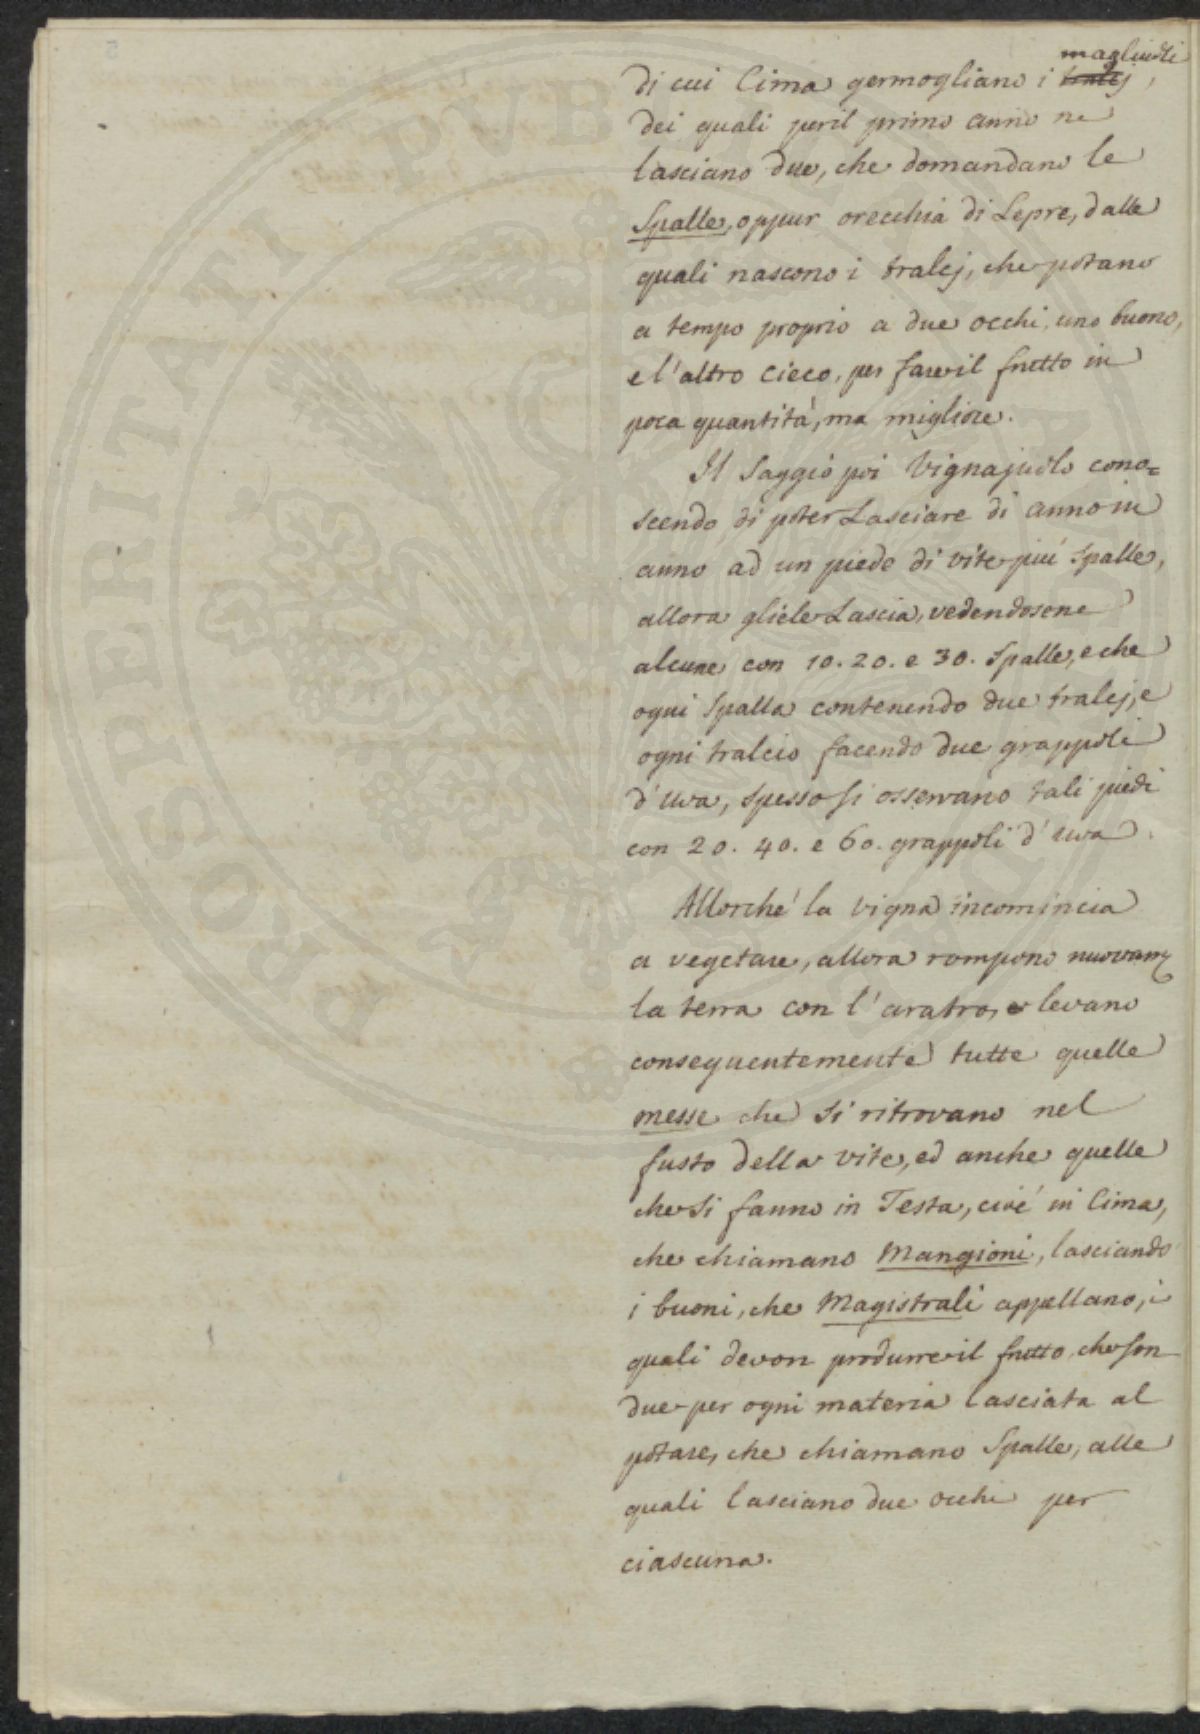 magliuoli
di cui Cima germogliano i tralcj,
dei quali per il primo anno ne
lasciano due, che domandano le
Spalle, oppur orecchia di Lepre, dalle
quali nascono i tralcj, che potano
a tempo proprio a due occhi, uno buono,
e l'altro cieco, per fare il frutto in
poca quantità, ma migliore.
Il Saggio poi Vignajuolo cono=
scendo di poter Lasciare di anno in
anno ad un piede di vite più Spalle,
allora gliele Lascia, vedendosene
alcune con 10. 20. e 30. Spalle, e che
ogni Spalla contenendo due tralcj, e
ogni tralcio facendo due grappoli
d'uva, spesso si osservano tali piedi
con 20. 40. e 60. grappoli d'uva.
Allorché la vigna incomincia
a vegetare, allora rompono nuovam
la terra con l'aratro, e levano
conseguentemente tutte quelle
messe che si ritrovano nel
fusto della vite, ed anche quelle
che Si fanno in Testa, cioé in Cima,
che chiamano Mangioni, lasciando
i buoni, che Magistrali appellano, i
quali devon produrre il frutto, che son
due per ogni materia lasciata al
potare, che chiamano Spalle, alle
quali lasciano due occhi per
ciascuna.
PROSPERITATI PUBLICAE